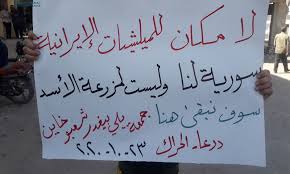 لا مكان للميلشيات الإيرانية
سورية لنا وليست لمزرعة الأسد
سوف نبقى هنا
جمعة يلي بيغدر شعبو خاين
درعا - الحراك
٢٣-١٠-٢٠٢٠